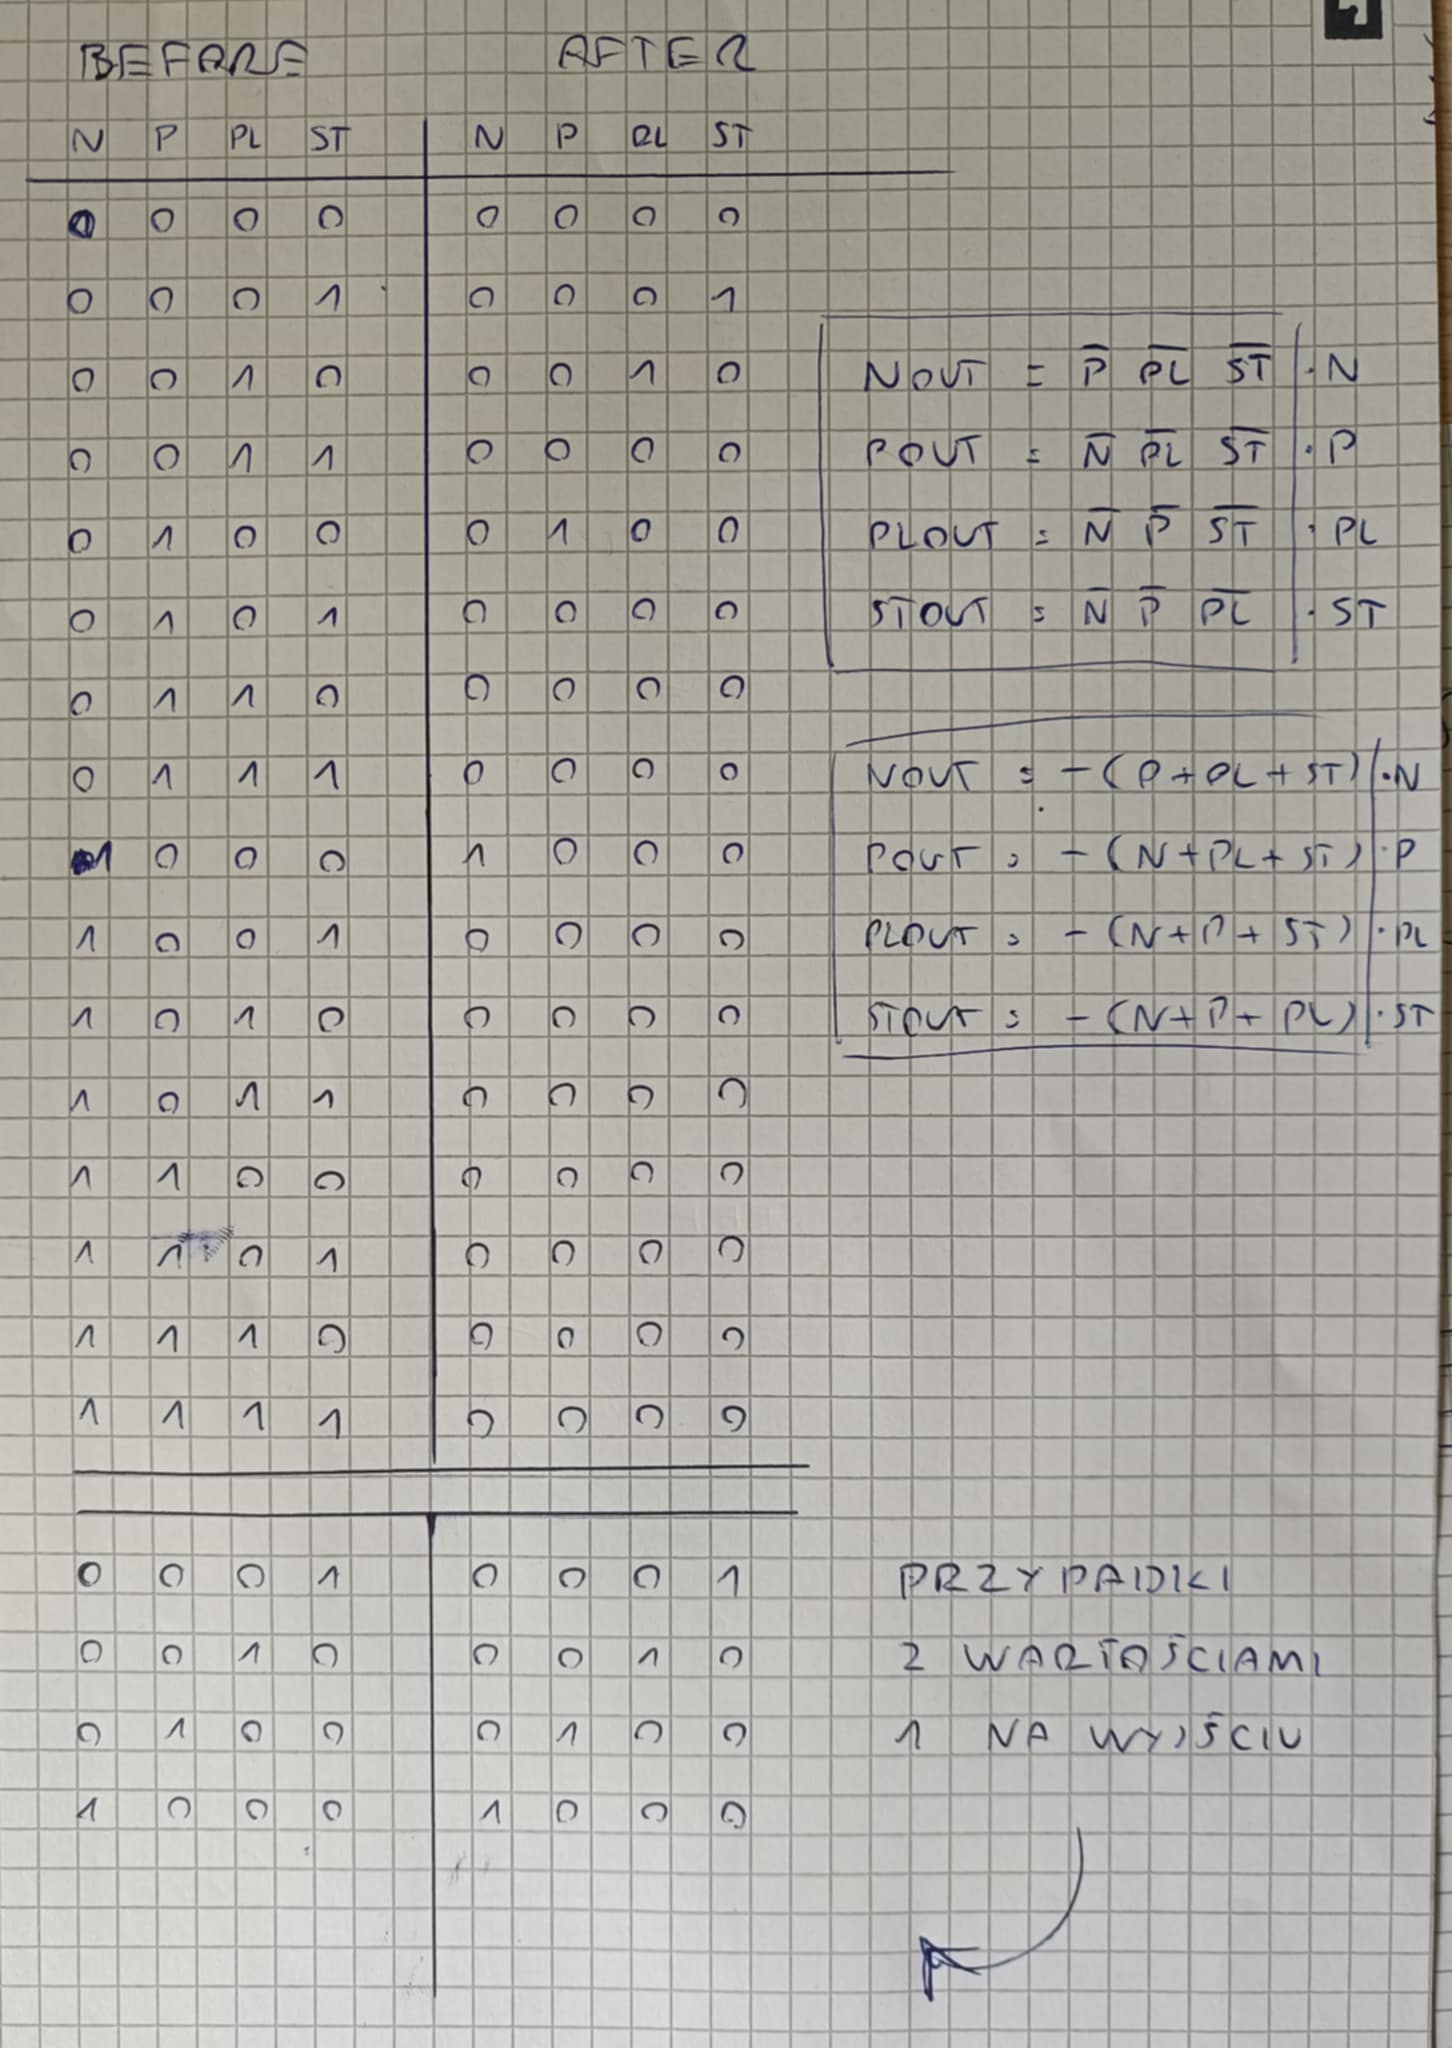 BEFORE AFTER
N P PL ST N P PL ST
0 0 0 0 0 0 0 0
0 0 0 1 0 0 0 1
0 0 1 0 0 0 1 0
0 0 1 1 0 0 0 0
0 1 0 0 0 1 0 0
0 1 0 1 0 0 0 0
0 1 1 0 0 0 0 0
0 1 1 1 0 0 0 0
1 0 0 0 1 0 0 0
1 0 0 1 0 0 0 0
1 0 1 0 0 0 0 0
1 0 1 1 0 0 0 0
1 1 0 0 0 0 0 0
1 1 0 1 0 0 0 0
1 1 1 0 0 0 0 0
1 1 1 1 0 0 0 0
NOUT = P̅ P̅L̅ S̅T̅ · N
POUT = N̅ P̅L̅ S̅T̅ · P
PLOUT = N̅ P̅ S̅T̅ · PL
STOUT = N̅ P̅ P̅L̅ · ST
NOUT = -(P+PL+ST) · N
POUT = -(N+PL+ST) · P
PLOUT = -(N+P+ST) · PL
STOUT = -(N+P+PL) · ST
0 0 0 1 0 0 0 1
0 0 1 0 0 0 1 0
0 1 0 0 0 1 0 0
1 0 0 0 1 0 0 0
PRZYPADKI
Z WARTOŚCIAMI
1 NA WYJŚCIU